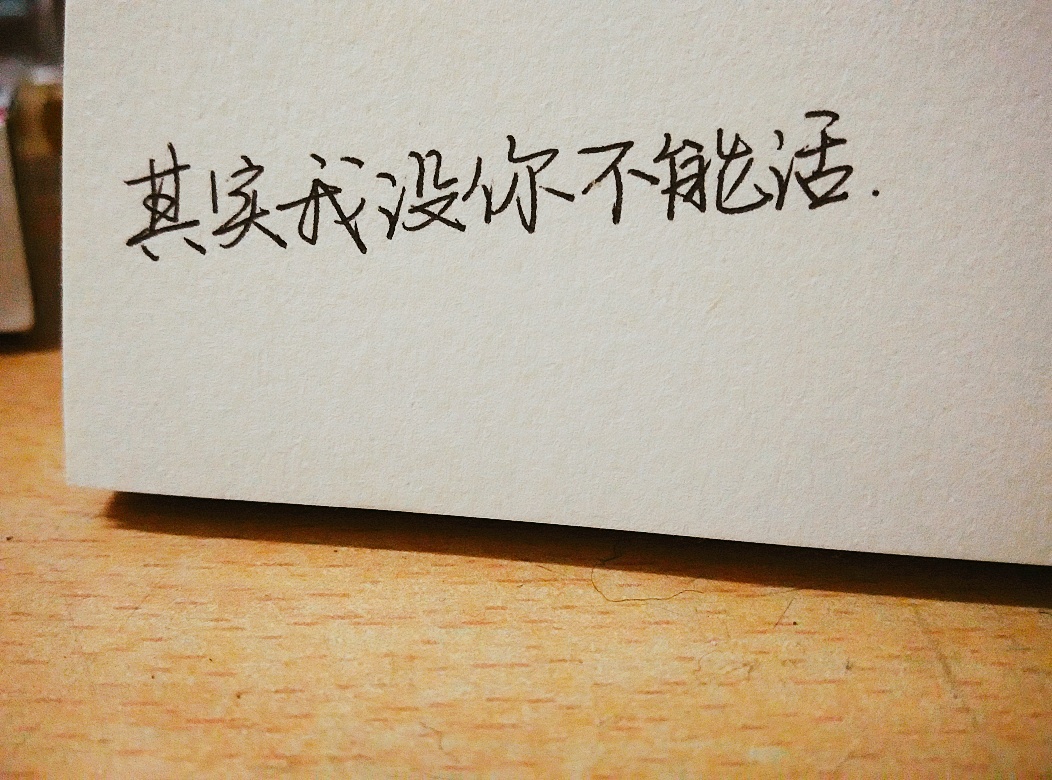 其实我没你不能活.